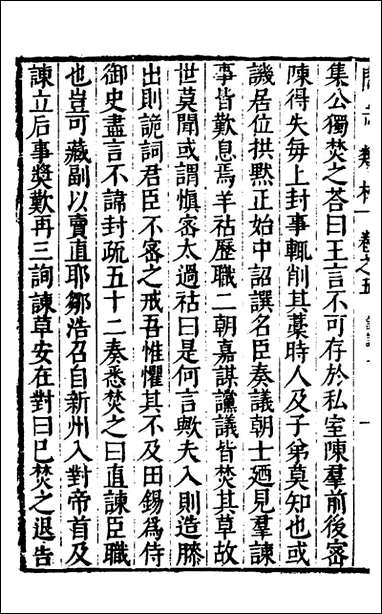 集公獨焚之荅曰王言不可存於私室陳羣前後密
陳得失每上封事輒削其藁時人及子弟莫知也或
譏居位拱黙正始中詔譔名臣奏議朝士廼見羣諫
事皆歎息焉羊祜歴職二朝嘉謀讜議皆焚其草故
世莫聞或謂慎密太過祜曰是何言歟夫入則造膝
出則詭詞君臣不密之戒吾惟懼其不及田錫爲侍
御史盡言不諱封疏五十二奏悉焚之曰直諫臣職
也豈可藏副以賣直耶鄒浩召自新州入對帝首及
諫立后事奬歎再三詢諫草安在對曰已焚之退告